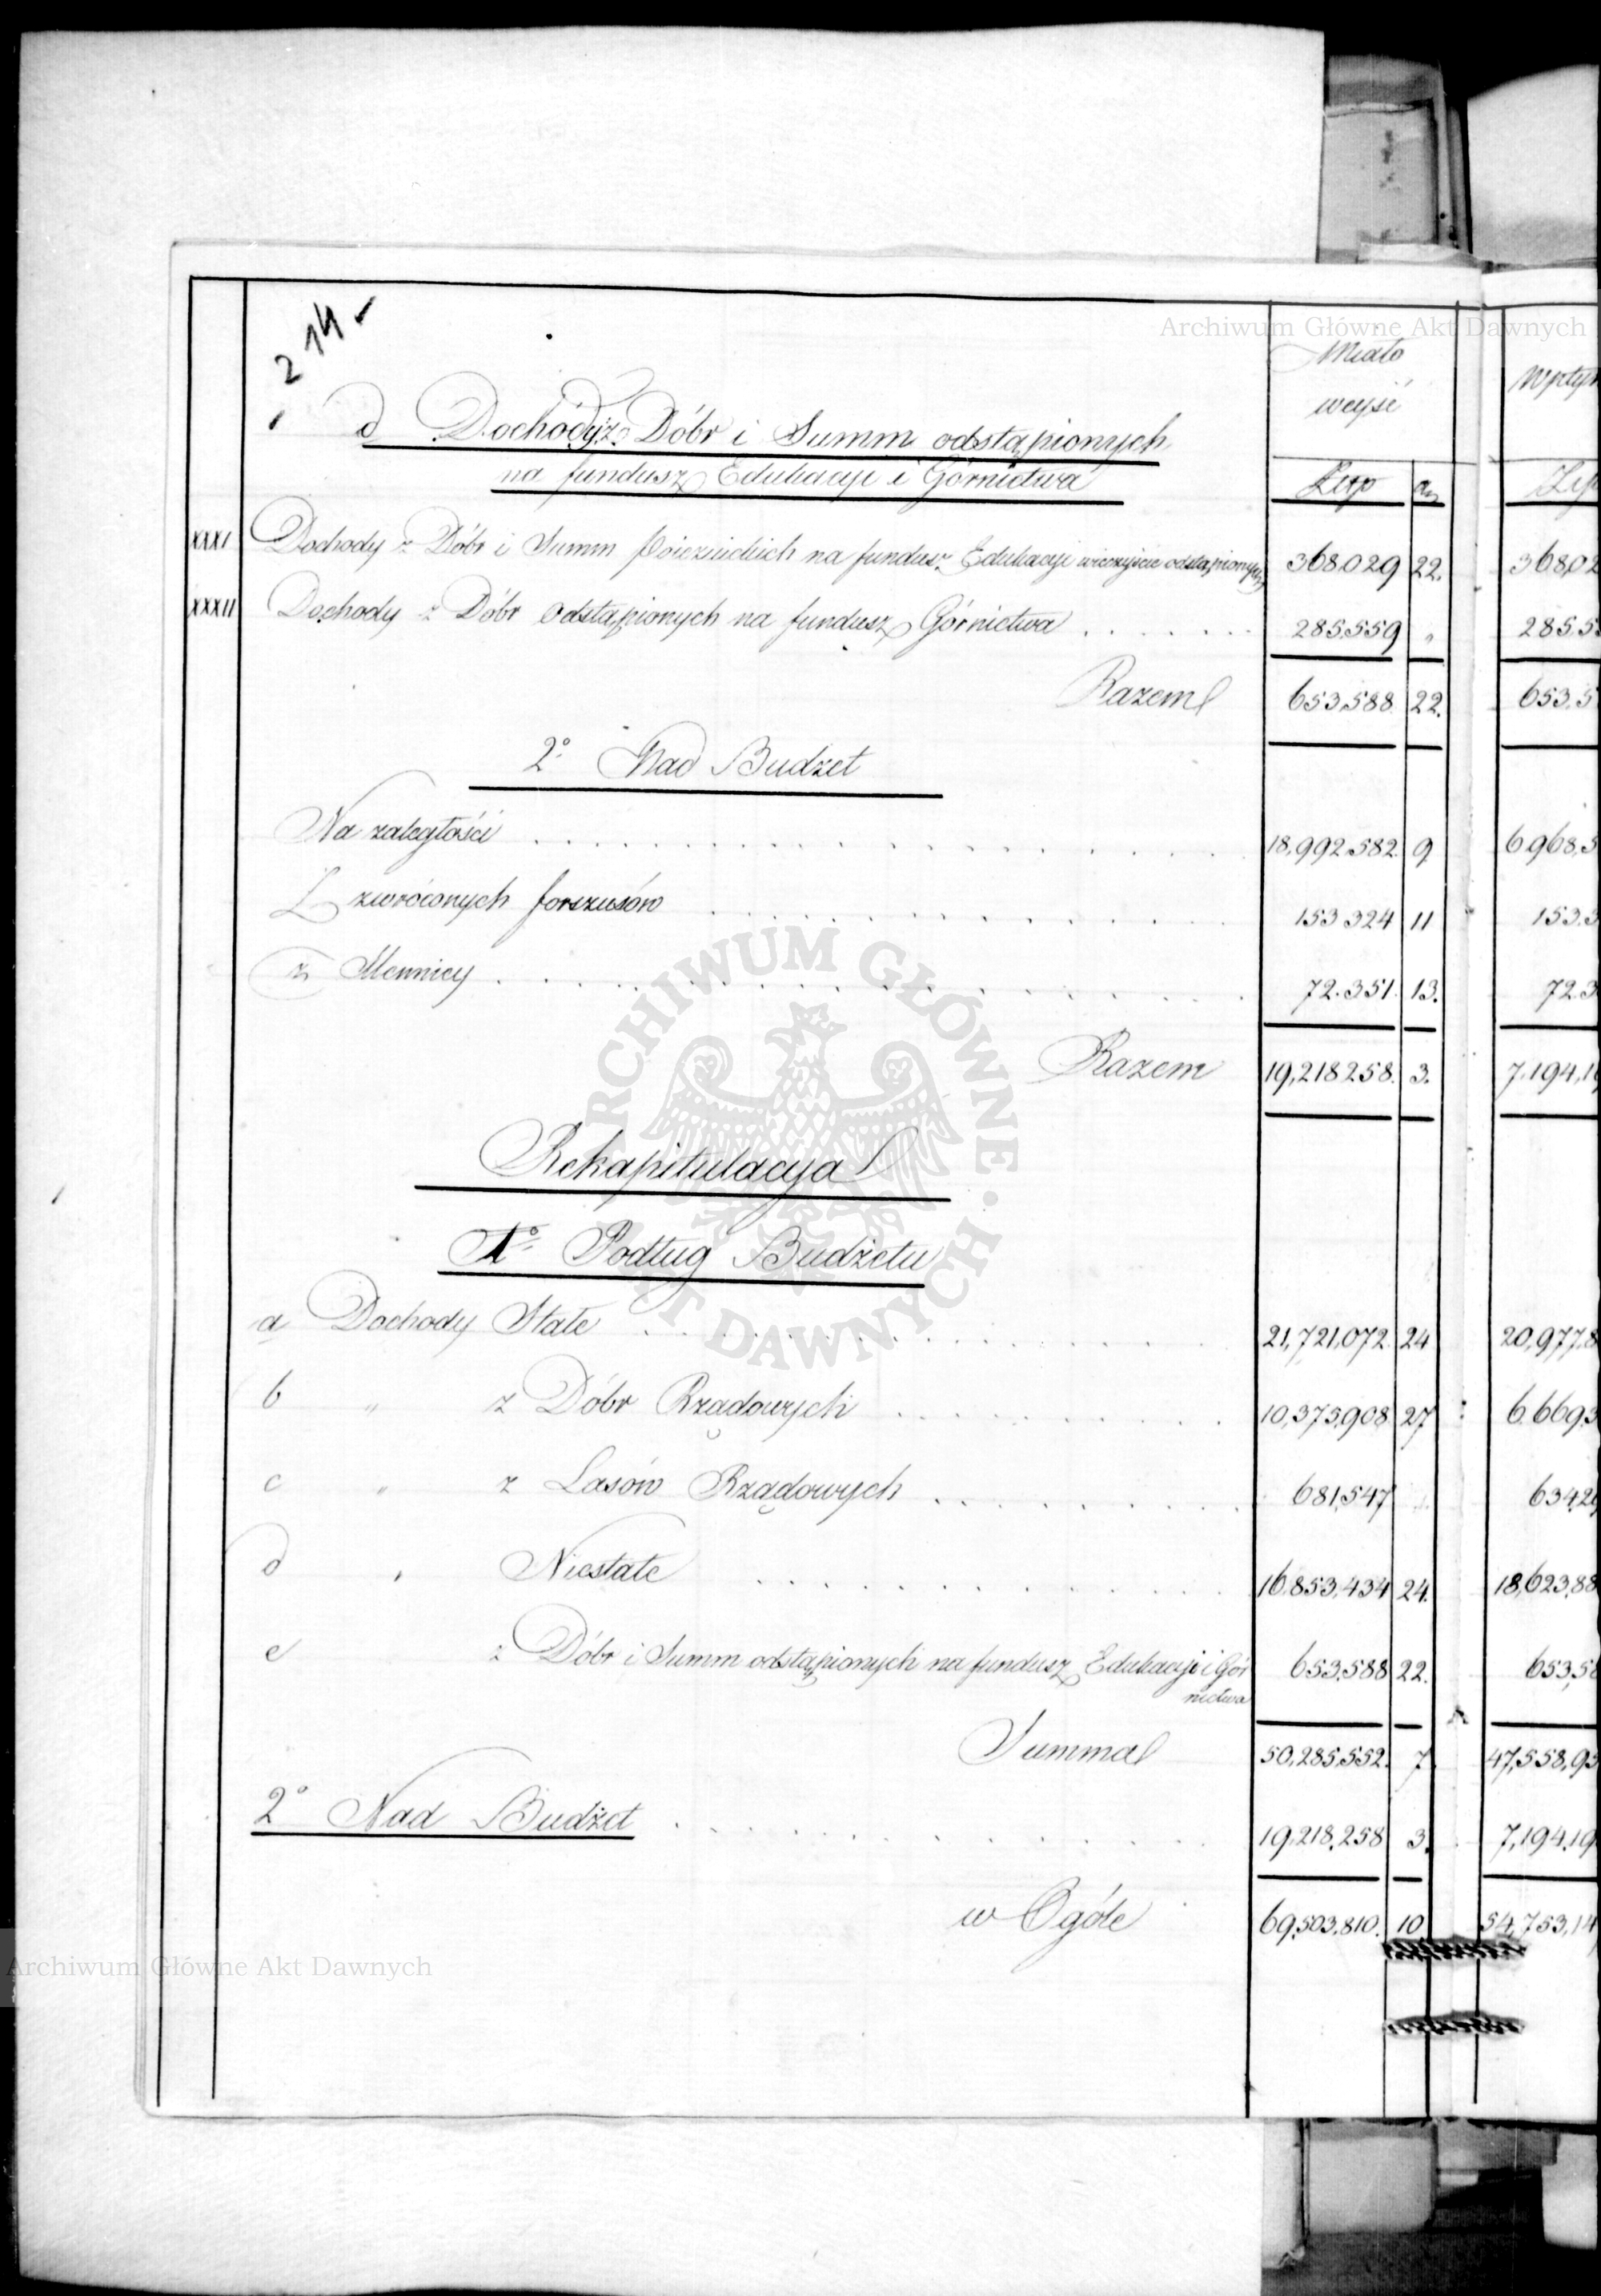 Archiwum Główne Akt Dawnych
214
Miało
wejść
Złtp gr
d Dochody z Dóbr i Summ odstąpionych
na fundusz Edukacyi i Górnictwa
XXXI Dochody z Dóbr i Summ Pojezuickich na fundusz Edukacyi wieczyście odstąpionych 368,029 22. 368,02
XXXII Dochody z Dóbr odstąpionych na fundusz Górnictwa . . . . . . . 285,559 „ 285,5
Razem 653,588 22. 653,5
2° Nad Budżet
Na zaległości . . . . . . . . . . . . . . . . 18,992,582. 9 6,968,5
Z zwróconych forszusów . . . . . . . . . . . . . . 153 324 11 153.3
z Mennicy . . . . . . . . . . . . . . . . . 72.351. 13. 72.3
Razem 19,218,258. 3. 7,194,1
Rekapitulacya
1° Podług Budżetu
a Dochody Stałe . . . . . . . . . . . . . 21,721,072. 24 20,977,8
b „ z Dóbr Rządowych . . . . . . . . . . 10,375,908 27 6,669,3
c „ z Lasów Rządowych . . . . . . . . . 681,547 634,2
d „ Niestałe . . . . . . . . . . . . . . 16,853,434 24. 18,623,88
e z Dóbr i Summ odstąpionych na fundusz Edukacyi i Gór 653,588 22. 653,58
nictwa
Summa 50,285,552. 7 47,558,95
2° Nad Budżet . . . . . . . . . . . . . . . 19,218,258 3. 7,194,19
w Ogóle 69,503,810. 10 54,753,14
Archiwum Główne Akt Dawnych
ARCHIWUM GŁÓWNE · AKT DAWNYCH ·